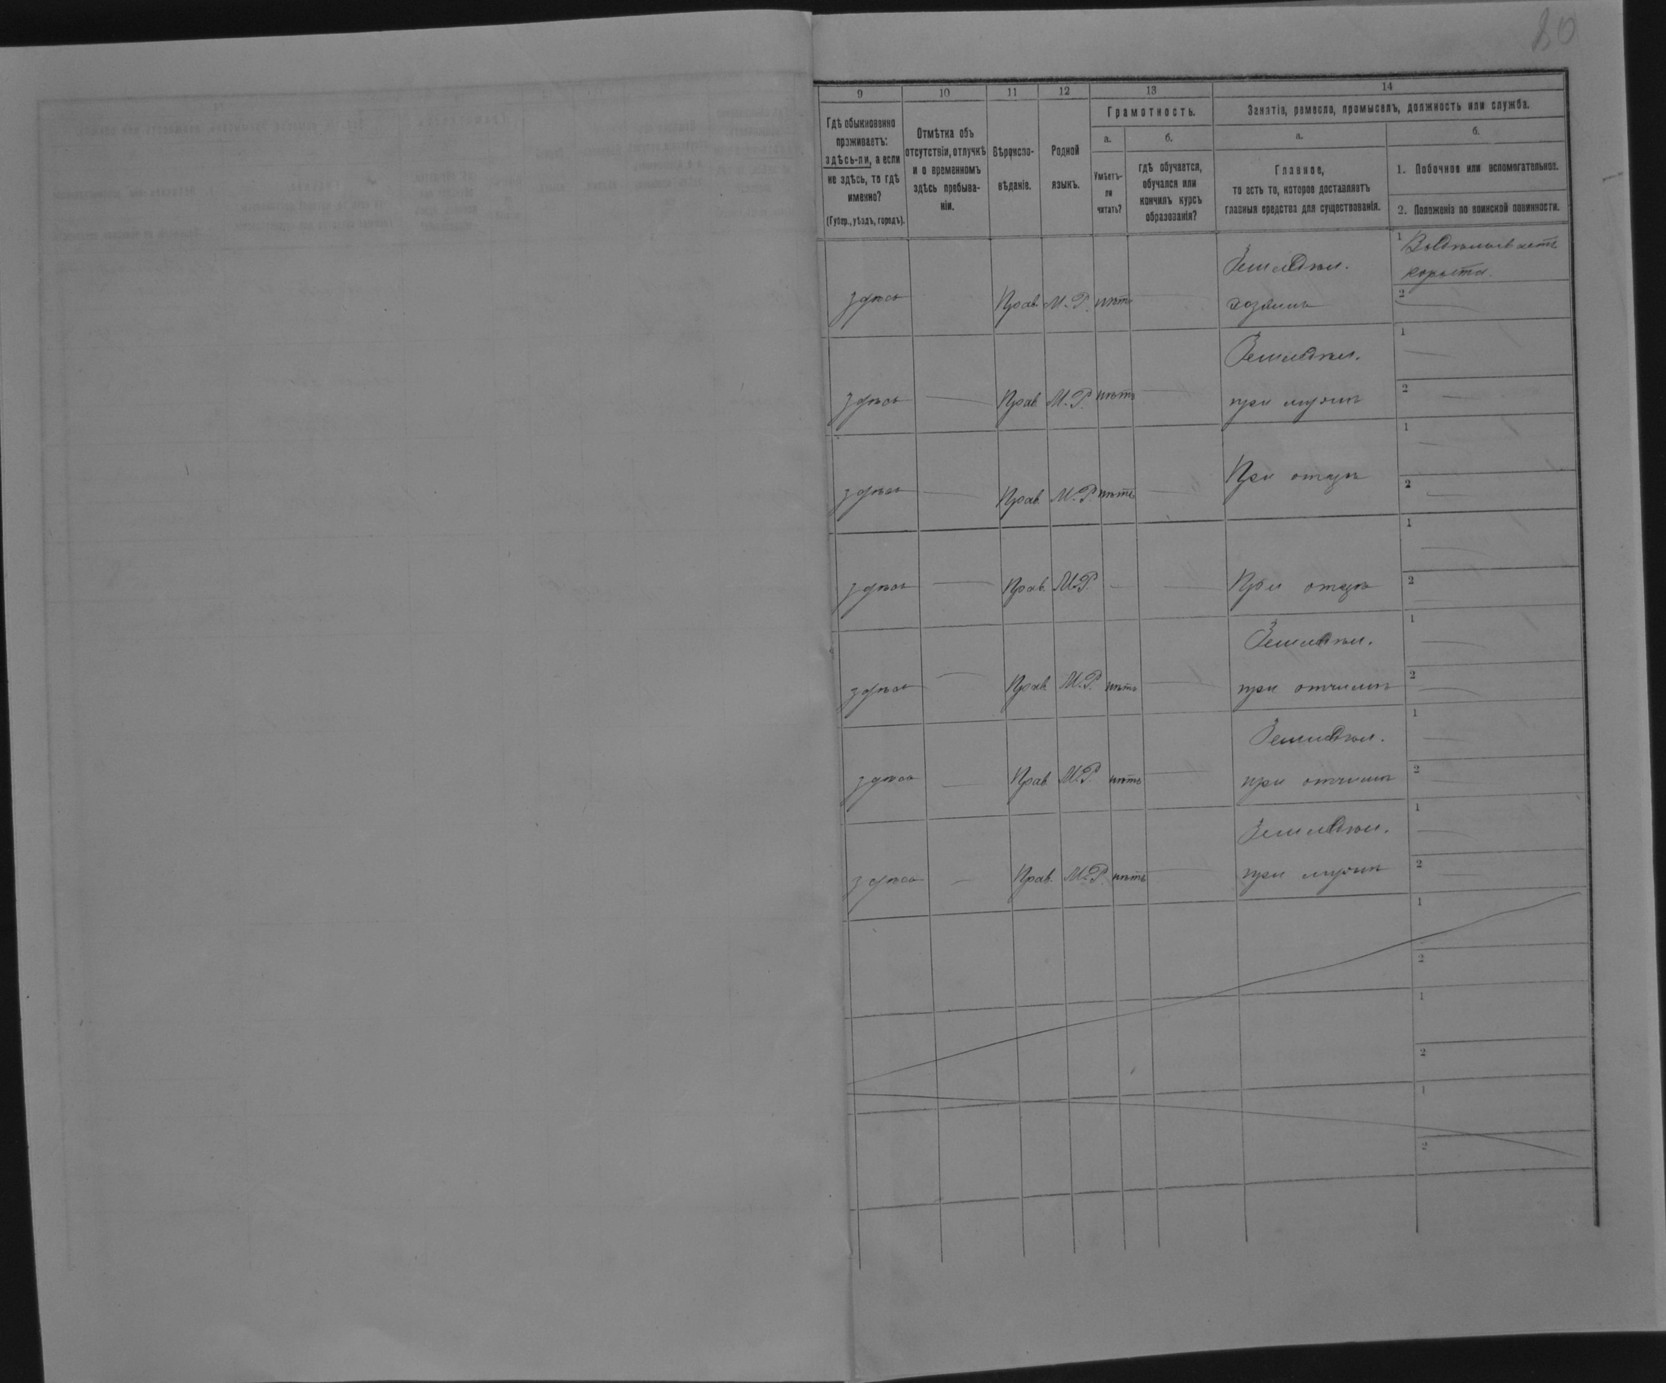 80
9 10 11 12 13 14
Гдѣ обыкновенно
проживаетъ:
здѣсь-ли, а если
не здѣсь, то гдѣ
именно?
(Губер., уѣздъ, городъ).
Отмѣтка объ
отсутствіи, отлучкѣ
и о временномъ
здѣсь пребыва-
ніи.
Вѣроиспо-
вѣданіе.
Родной
языкъ.
Грамотность.
а.
Умѣетъ-
ли
читать?
б.
гдѣ обучается,
обучался или
кончилъ курсъ
образованія?
Занятіе, ремесло, промыселъ, должность или служба.
а.
Главное,
то есть то, которое доставляетъ
главныя средства для существованія.
б.
1. Побочное или вспомогательное.
2. Положеніе по воинской повинности.
Земледѣл. 1
корыта
здѣсь Прав. М.Р. нѣтъ хозяинъ 2
Земледѣл. 1
здѣсь — Прав. М.Р. нѣтъ — при мужѣ 2 —
1 —
здѣсь — Прав. М.Р. нѣтъ — При отцѣ 2 —
1 —
здѣсь — Прав. М.Р. — — При отцѣ 2 —
Земледѣл. 1 —
здѣсь — Прав. М.Р. нѣтъ — при отчимѣ 2 —
Земледѣл. 1 —
здѣсь — Прав. М.Р. нѣтъ — при отчимѣ 2 —
Земледѣл. 1 —
здѣсь — Прав. М.Р. нѣтъ — при мужѣ 2 —
1
2
1
2
1
2